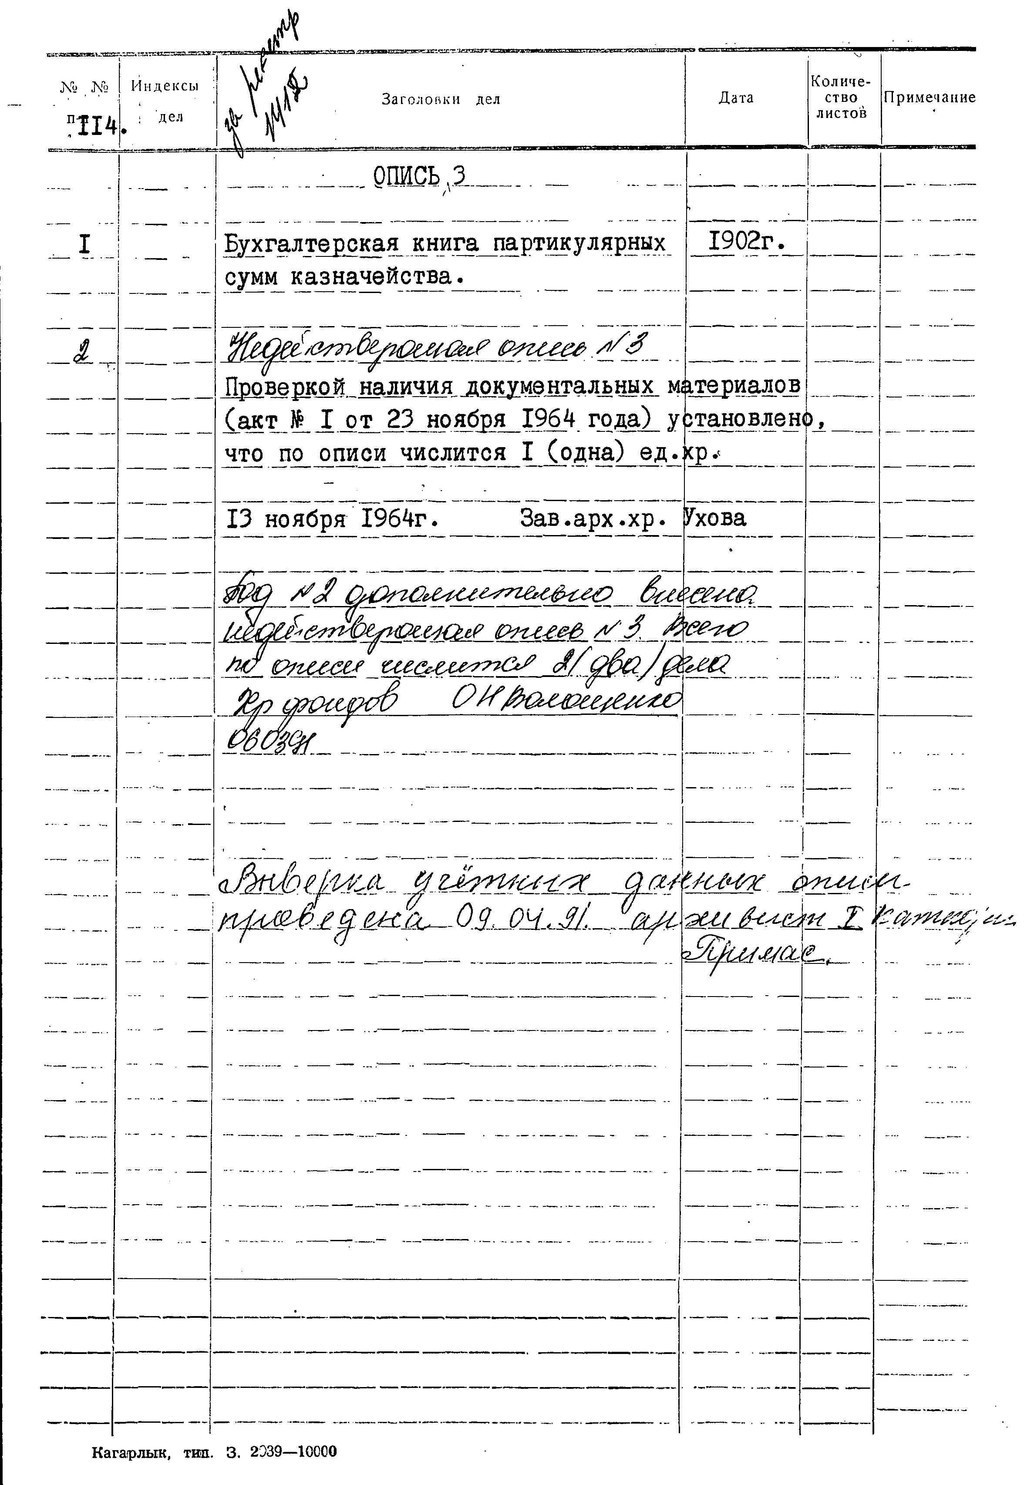 № № п/п
Индексы дел
Заголовки дел
Дата
Количе-
ство
листов
Примечание
II4.
за реестр
1412
ОПИСЬ 3
I
Бухгалтерская книга партикулярных
I902г.
сумм казначейства.
2
Недействеромая опись N 3
Проверкой наличия документальных материалов
(акт № I от 23 ноября I964 года) установлено,
что по описи числится I (одна) ед.хр.
I3 ноября I964г. Зав.арх.хр. Ухова
Под N 2 дополнительно внесена
недействеромая опись N 3. Всего
по описи числится 2/два/дела
Хр фондов ОН Волощенко
060391
Выверка учётных данных описи
проведена 09.04.91. архивист I категории
Примас.
Кагарлык, тип. З. 2039—10000